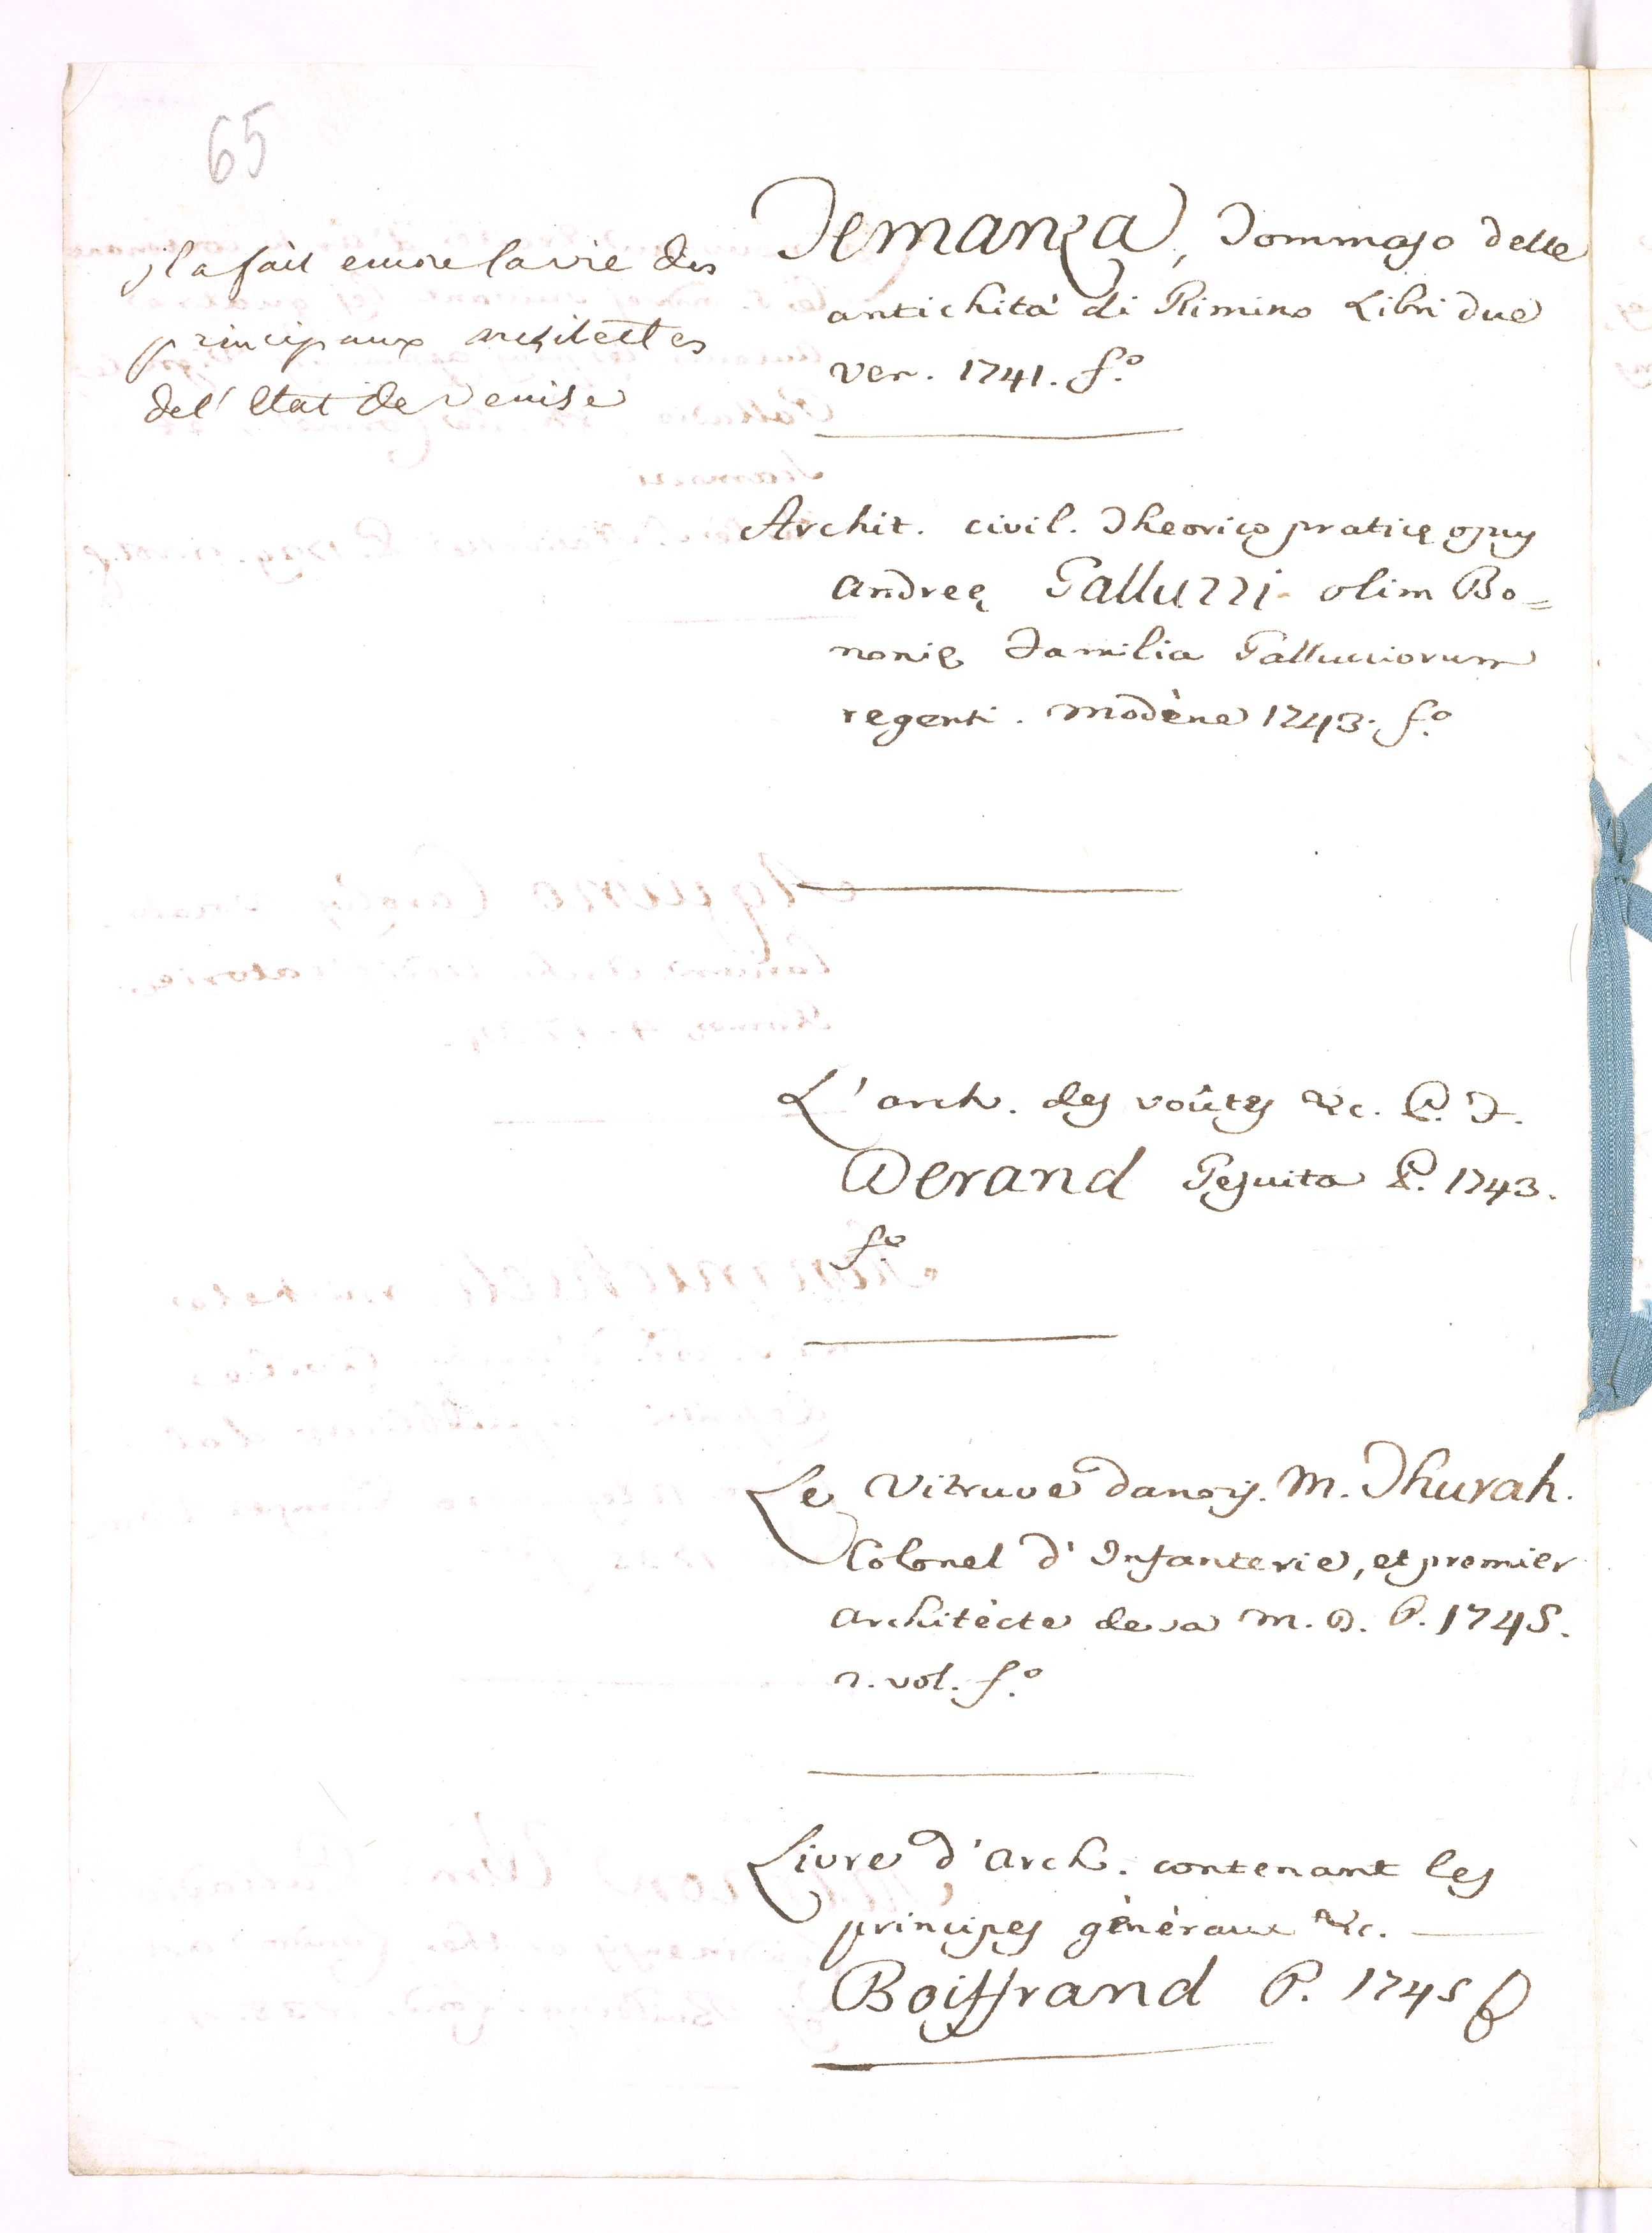 65
jl a fait encore la vie des
principaux architectes
de l'Etat de Venise
Temanza, Tommaso delle
antichità di Rimino Libri due
Ven. 1741. f.º
Archit. civil. Theoricę praticę opus
Andreę Galluzzi olim Bo=
nonię Familia Gallucciorum
regenti. Modène 1743. f.º
L'arch. des voûtes &c. P. F.
Derand Jesuita P. 1743.
f.º
Le Vitruve danois. M. Thurah.
Colonel d'Infanterie, et premier
architècte de sa M. D. P. 1745.
2. vol. f.º
Livre d'Arch. contenant les
principes gènèraux &c.
Boiffrand P. 1745